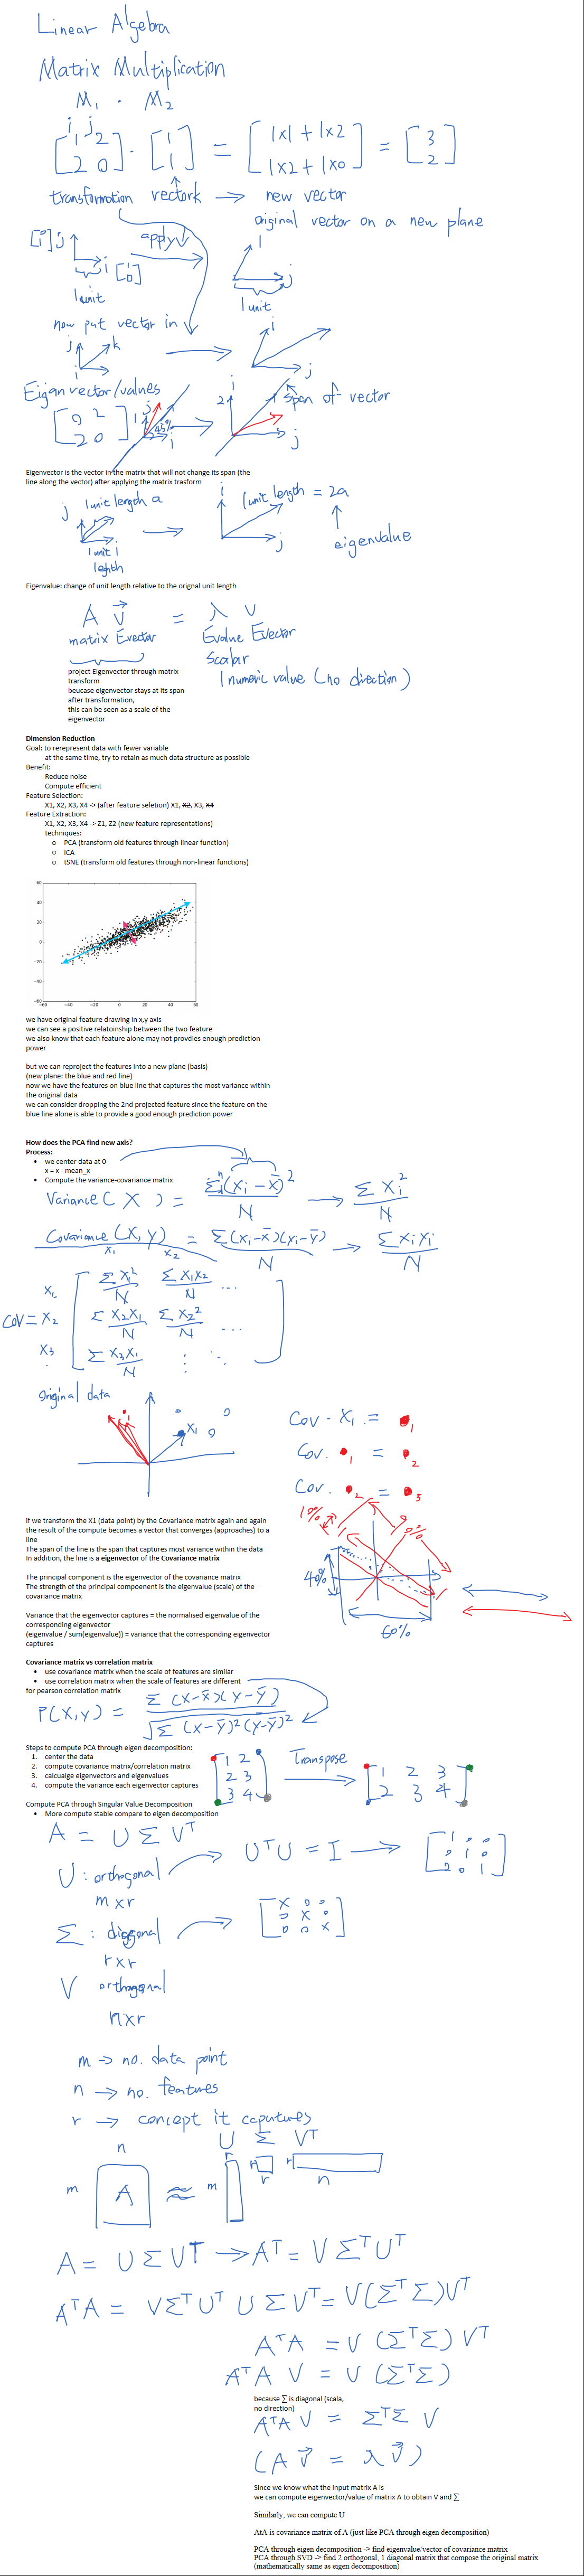 Linear Algebra
Matrix Multiplication
M₁ . M₂
i j
[1 2; 2 0] . [1; 1] = [1x1 + 1x2; 1x2 + 1x0] = [3; 2]
transformation vector → new vector
original vector on a new plane
[0 1] j apply i
i [1 0] j
1 unit 1 unit
now put vector in
j k i
i j
Eigen vector/values
[0 2; 2 0] 1 j 45% i 2 i span of vector
j
Eigenvector is the vector in the matrix that will not change its span (the
line along the vector) after applying the matrix trasform
j 1 unit length a → i 1 unit length = 2a
1 unit 1 j eigenvalue
length
Eigenvalue: change of unit length relative to the orignal unit length
A v = λ v
matrix Evector Evalue Evector
scalar
1 numeric value (no direction)
project Eigenvector through matrix
transform
beucase eigenvector stays at its span
after transformation,
this can be seen as a scale of the
eigenvector
Dimension Reduction
Goal: to rerepresent data with fewer variable
at the same time, try to retain as much data structure as possible
Benefit:
Reduce noise
Compute efficient
Feature Selection:
X1, X2, X3, X4 -> (after feature seletion) X1, X2, X3, X4
Feature Extraction:
X1, X2, X3, X4 -> Z1, Z2 (new feature representations)
techniques:
o PCA (transform old features through linear function)
o ICA
o tSNE (transform old features through non-linear functions)
60
40
20
0
−20
−40
−60
−60 −40 −20 0 20 40 60
we have original feature drawing in x,y axis
we can see a positive relatoinship between the two feature
we also know that each feature alone may not provdies enough prediction
power
but we can reproject the features into a new plane (basis)
(new plane: the blue and red line)
now we have the features on blue line that captures the most variance within
the original data
we can consider dropping the 2nd projected feature since the feature on the
blue line alone is able to provide a good enough prediction power
How does the PCA find new axis?
Process:
• we center data at 0
x = x - mean_x
• Compute the variance-covariance matrix
Variance(X) = Σ(xi − x̄)² / N → Σ xi² / N
Covariance(X, Y) = Σ(xi − x̄)(yi − ȳ) / N → Σ xi yi / N
x₁ x₂
x₁ Σx₁²/N Σx₁x₂/N ...
COV = x₂ Σx₂x₁/N Σx₂²/N ...
x₃ Σx₃x₁/N
original data
x₁
Cov . x₁ = ●₁
Cov. ●₁ = ●₂
Cov. ●₂ = ●₃
10% 90%
40%
60%
if we transform the X1 (data point) by the Covariance matrix again and again
the result of the compute becomes a vector that converges (approaches) to a
line
The span of the line is the span that captures most variance within the data
In addition, the line is a eigenvector of the Covariance matrix
The principal component is the eigenvector of the covariance matrix
The strength of the principal compoenent is the eigenvalue (scale) of the
covariance matrix
Variance that the eigenvector captures = the normalised eigenvalue of the
corresponding eigenvector
(eigenvalue / sum(eigenvalue)) = variance that the corresponding eigenvector
captures
Covariance matrix vs correlation matrix
• use covariance matrix when the scale of features are similar
• use correlation matrix when the scale of features are different
for pearson correlation matrix
P(X,Y) = Σ (X−x̄)(Y−ȳ) / √Σ (X−x̄)²(Y−ȳ)²
Steps to compute PCA through eigen decomposition:
1. center the data
2. compute covariance matrix/correlation matrix
3. calcualge eigenvectors and eigenvalues
4. compute the variance each eigenvector captures
[1 2; 2 3; 3 4] Transpose → [1 2 3; 2 3 4]
Compute PCA through Singular Value Decomposition
• More compute stable compare to eigen decomposition
A = U Σ Vᵀ
UᵀU = I → [1 0 0; 0 1 0; 2 0 1]
U : orthogonal
m x r
Σ : diagonal [x 0 0; 0 x 0; 0 0 x]
r x r
V orthogonal
n x r
m → no. data point
n → no. features
r → concept it caputures
U Σ Vᵀ
n r
m A ≈ m r r r n
A = U Σ Vᵀ → Aᵀ = V Σᵀ Uᵀ
AᵀA = VΣᵀUᵀ U Σ Vᵀ = V(ΣᵀΣ)Vᵀ
AᵀA = V (ΣᵀΣ) Vᵀ
AᵀA V = V (ΣᵀΣ)
because ∑ is diagonal (scala,
no direction)
AᵀA V = ΣᵀΣ V
(A v = λ v)
Since we know what the input matrix A is
we can compute eigenvector/value of matrix A to obtain V and ∑
Similarly, we can compute U
AtA is covariance matrix of A (just like PCA through eigen decomposition)
PCA through eigen decomposition -> find eigenvalue/vector of covariance matrix
PCA through SVD -> find 2 orthogonal, 1 diagonal matrix that compose the original matrix
(mathematically same as eigen decomposition)